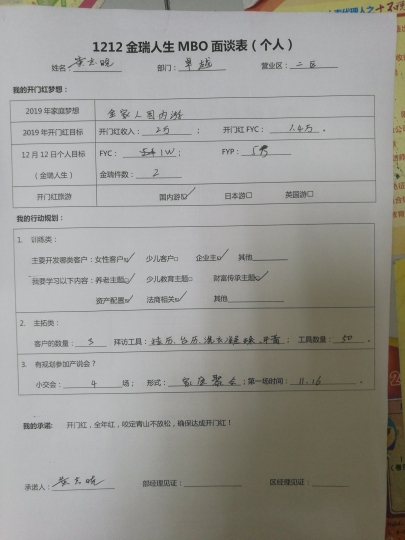 1212 金瑞人生 MBO 面谈表（个人）
姓名： 部门：卓越 营业区：二区
我的开门红梦想：
2019 年家庭梦想 全家人国内游
2019 年开门红目标 开门红收入：2万； 开门红 FYC：1.4万。
12 月 12 日个人目标 FYC：1W； FYP：
（金瑞人生） 金瑞件数：2
开门红旅游 国内游☑ 日本游□ 英国游□
我的行动规划：
1. 训练类：
主要开发哪类客户：女性客户☑ 少儿客户□ 企业主☑ 其他
我要学习以下内容：养老主题☑ 少儿教育主题□ 财富传承主题☑
资产配置☑ 法商相关☑ 其他
2. 主拓类：
客户的数量：5 拜访工具： 台历 ；工具数量：50。
3. 有规划参加产说会？
小交会：4 场； 形式：家庭聚会；第一场时间：11.16。
我的承诺： 开门红，全年红，咬定青山不放松，确保达成开门红！
承诺人： 部经理见证： 区经理见证：